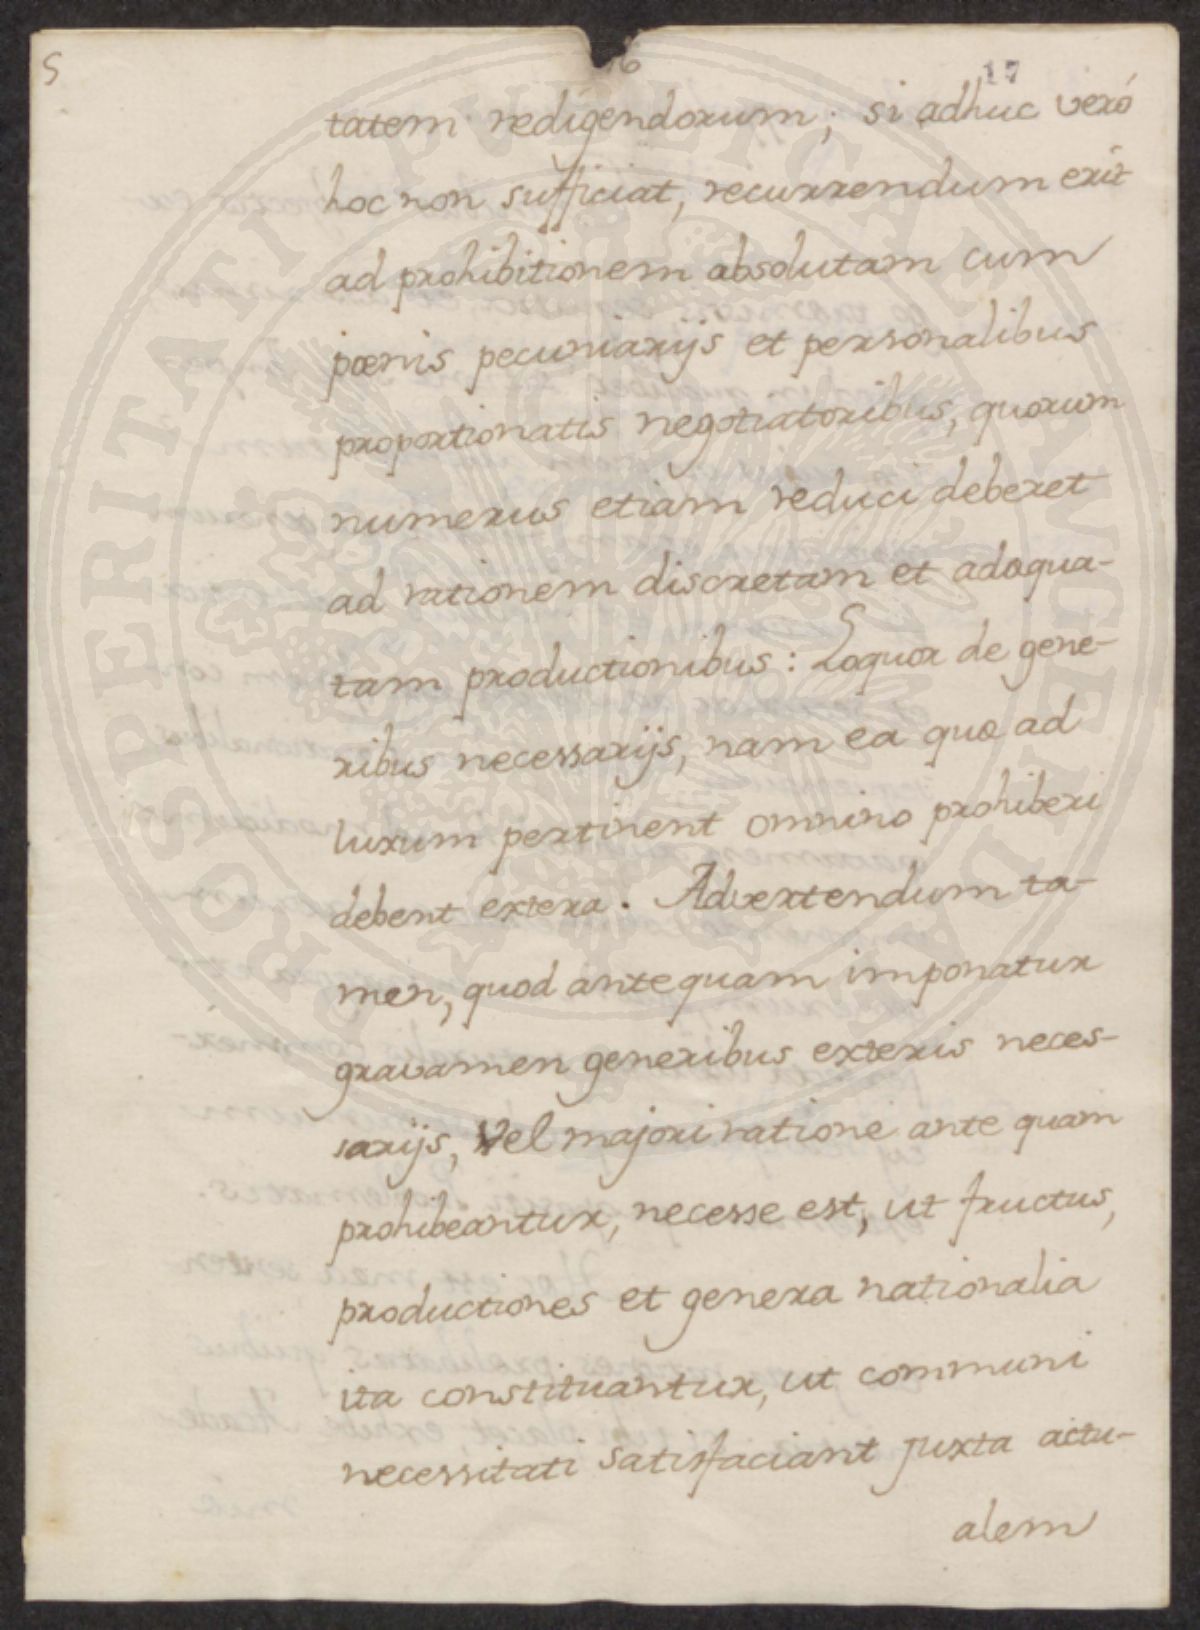 S
16
17
tatem redigendorum; si adhuc veró
hoc non sufficiat, recurrendum erit
ad prohibitionem absolutam cum
pœnis pecuniarijs et personalibus
proportionatis negotiatoribus, quorum
numerus etiam reduci deberet
ad rationem discretam et adæqua-
tam productionibus: Loquor de gene-
ribus necessarijs, nam ea quæ ad
luxum pertinent omnino prohiberi
debent extera. Advertendum ta-
men, quod ante quam imponatur
gravamen generibus exteris neces-
sarijs, vel majori ratione ante quam
prohibeantur, necesse est, ut fructus,
productiones et genera nationalia
ita constituantur, ut communi
necessitati satisfaciant juxta actu-
alem
PROSPERITATI PVBLICAE AVGENDAE